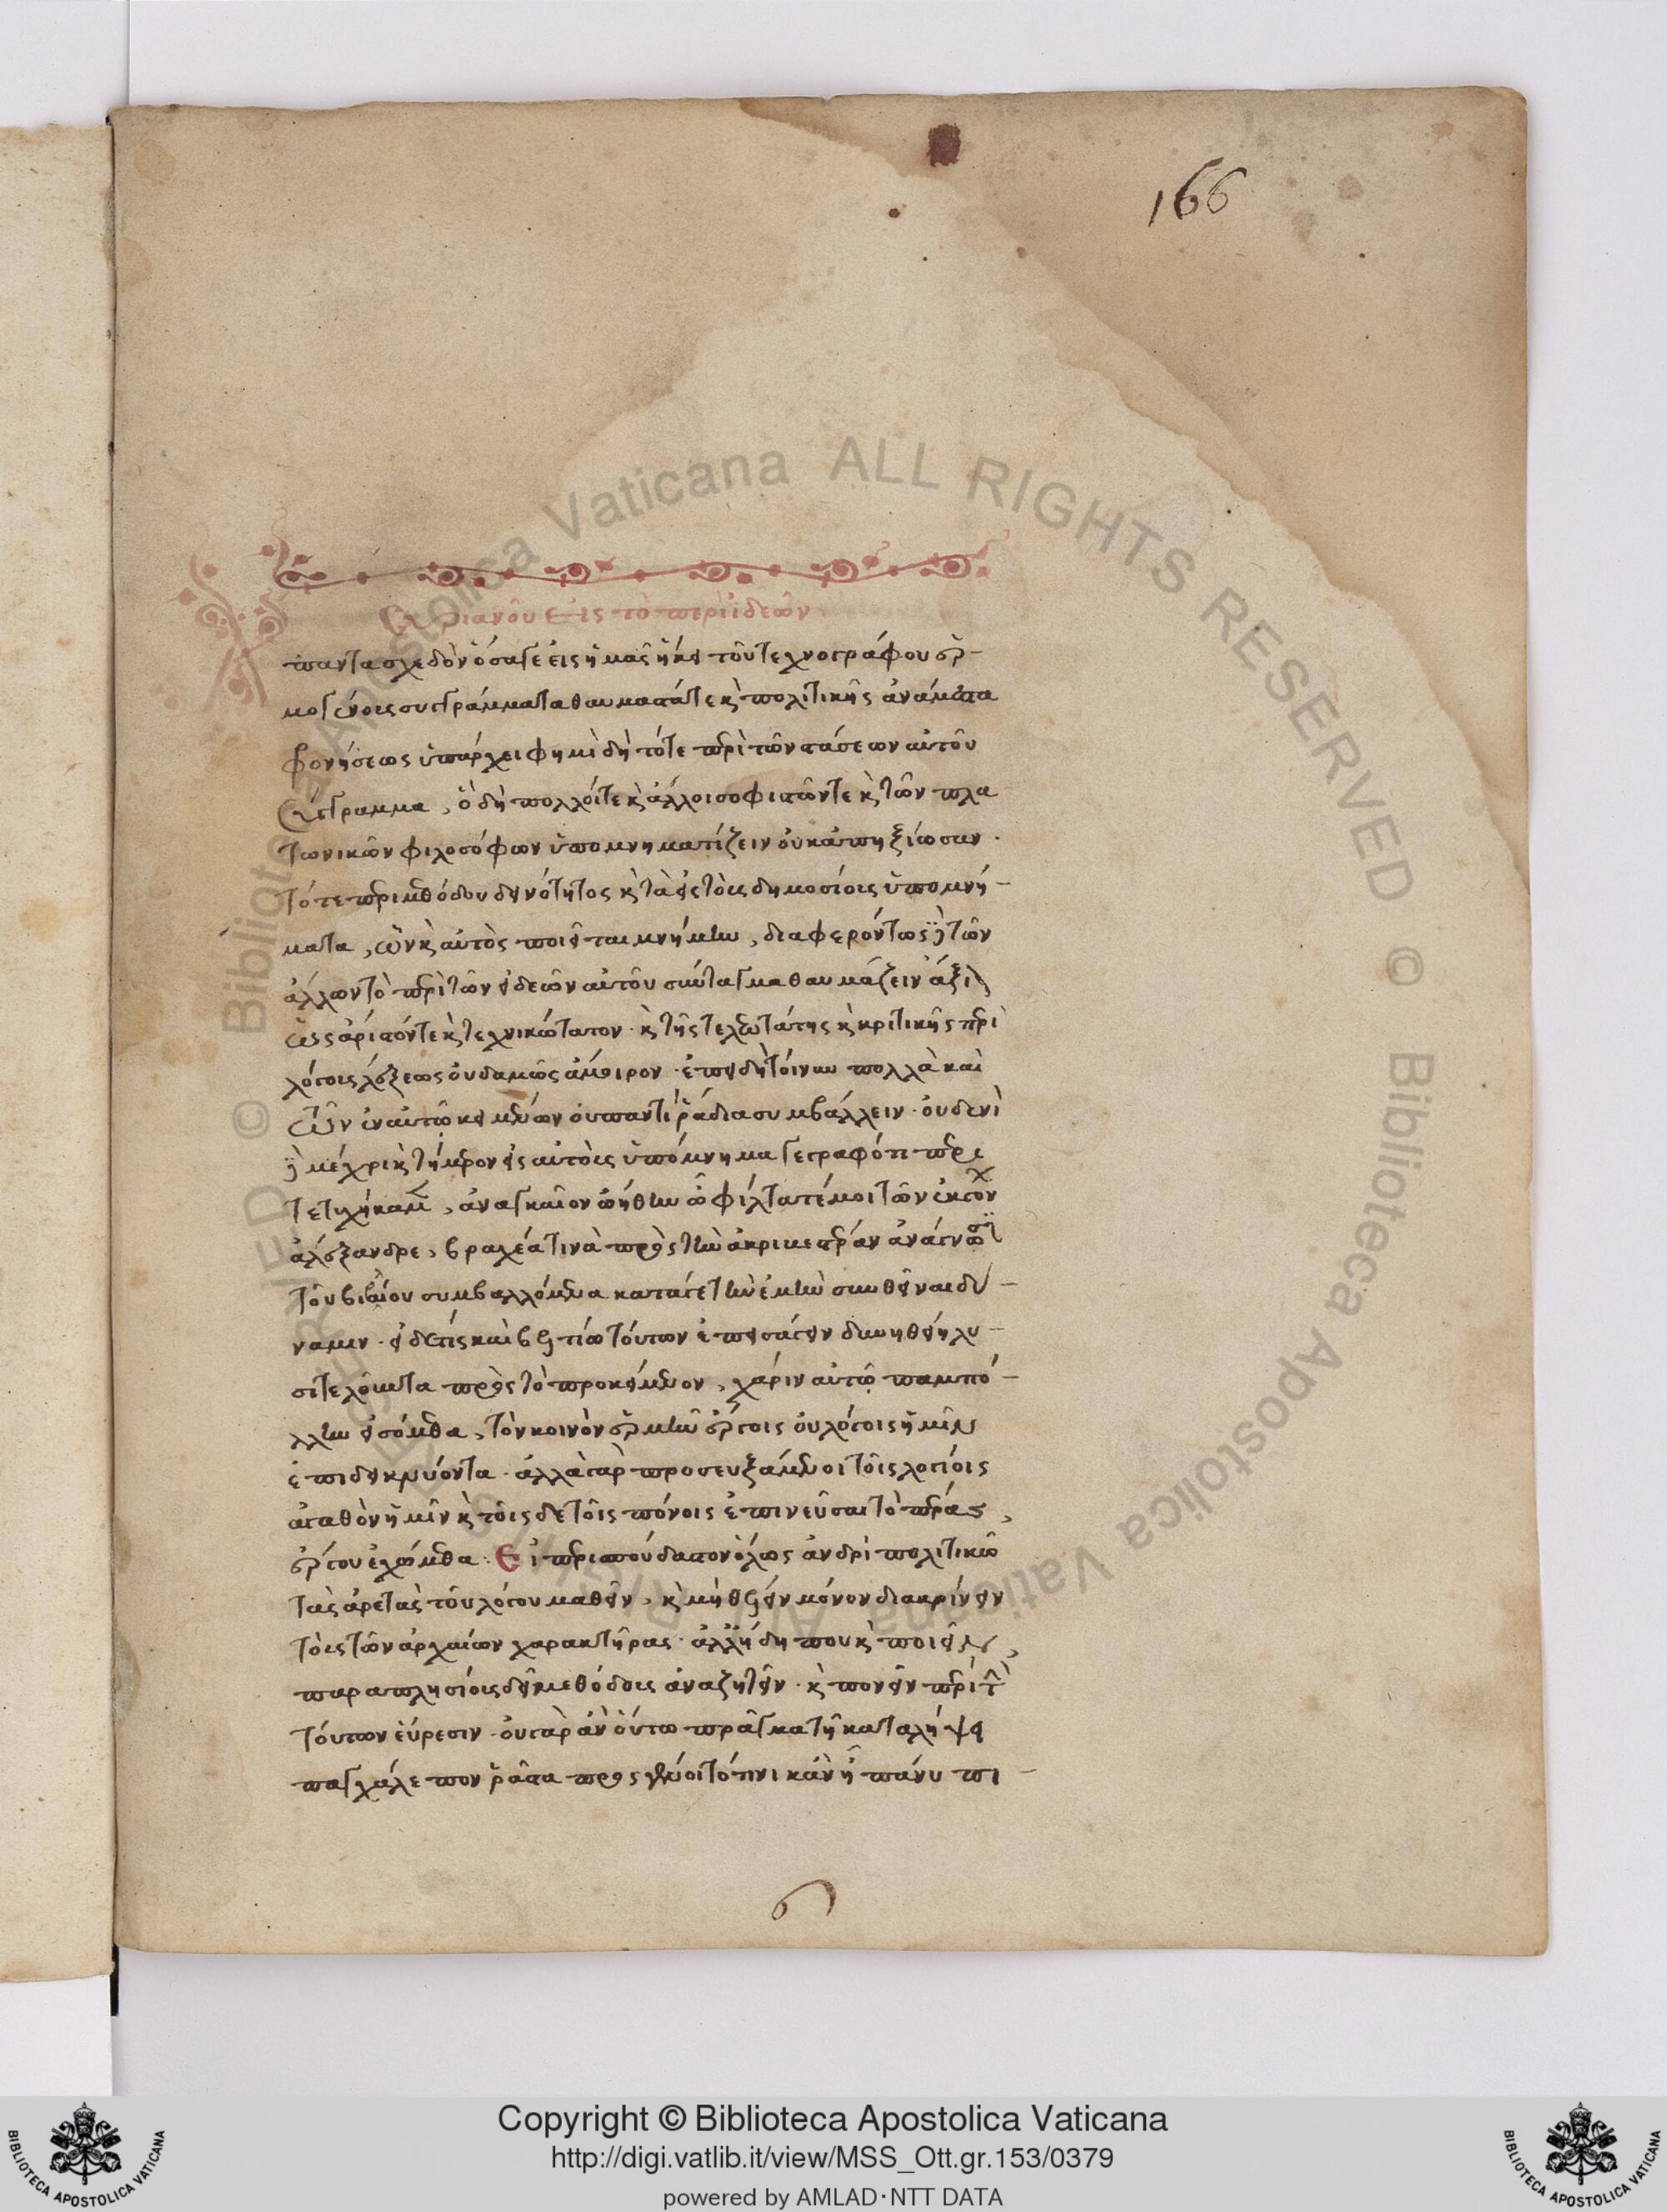 166
Συριανοῦ εἰς τὸ περὶ ἰδεῶν
πάντα σχεδὸν ὅσα γε εἰς ἡμᾶς ἥκει τοῦ τεχνογράφου Ἑρ-
μογένους συγγράμματα θαυμαστά τε κ πολιτικῆς ἀνάμεστα
φρονήσεως ὑπάρχει φημὶ δὴ τό τε περὶ τῶν στάσεων αὐτοῦ
σύγγραμμα, ὃ δὴ πολλοί τε κ ἄλλοι σοφιστῶν τε κ τῶν πλα
τωνικῶν φιλοσόφων ὑπομνηματίζειν οὐκ ἀπηξίωσαν.
τό τε περὶ μεθόδου δεινότητος κ τὰ εἰς τοὺς δημοσίους ὑπομνή-
ματα, ὧν κ αὐτὸς ποιεῖται μνήμην, διαφερόντως δὲ τῶν
ἄλλων τὸ περὶ τῶν ἰδεῶν αὐτοῦ σύνταγμα θαυμάζειν ἄξιον
ὡς ἄριστόν τε κ τεχνικώτατον. κ τῆς τελεωτάτης κ κριτικῆς περὶ
λόγους λέξεως οὐδαμῶς ἄμοιρον. ἐπειδὴ τοίνυν πολλὰ καὶ
τῶν ἐν αὐτῷ κειμένων οὐ παντὶ ῥάδια συμβάλλειν. οὐδενὶ
δὲ μέχρι κ τήμερον εἰς αὐτοὺς ὑπόμνημα γεγραφότι περι
τετυχήκαμεν, ἀναγκαῖον ᾠήθην ὦ φίλτατέ μοι τῶν ἐκγόνων
ἀλέξανδρε, βραχέα τινὰ πρὸς τὴν ἀκριβεστέραν ἀνάγνωσιν
τοῦ βιβλίου συμβαλλόμενα κατά γε τὴν ἐμὴν συνθεῖναι δύ-
ναμιν. εἰ δέ τις καὶ βελτίω τούτων ἐπεισάγειν δυνηθείη λυ-
σιτελοῦντα πρὸς τὸ προκείμενον, χάριν αὐτῷ παμπό-
λλην εἰσόμεθα, τὸν κοινὸν ἑρμῆν ἔργοις οὐ λόγοις ἡμῖν
ἐπιδεικνύοντα. ἀλλὰ γὰρ προσευξάμενοι τοῖς λογίοις
ἀγαθὸν ἡμῖν κ τοῖσδε τοῖς πόνοις ἐπινεῦσαι τὸ πέρας,
ἔργου ἐχώμεθα. Εἰ περισπούδαστον ὅλως ἀνδρὶ πολιτικῷ
τὰς ἀρετὰς τοῦ λόγου μαθεῖν, κ μὴ θέλειν μόνον διακρίνειν
τοὺς τῶν ἀρχαίων χαρακτῆρας. ἀλλ' ἤδη που κ ποιεῖν,
παραπλησίους δεῖ μεθόδους ἀναζητεῖν. κ πονεῖν περὶ τὴν
τούτων εὕρεσιν. οὐ γὰρ ἂν οὕτω πράγματι καταλήψει
παγχάλεπον ῥᾷστα προσγένοιτό τινι κἂν ᾖ πάνυ τι-
Copyright © Biblioteca Apostolica Vaticana
http://digi.vatlib.it/view/MSS_Ott.gr.153/0379
powered by AMLAD·NTT DATA